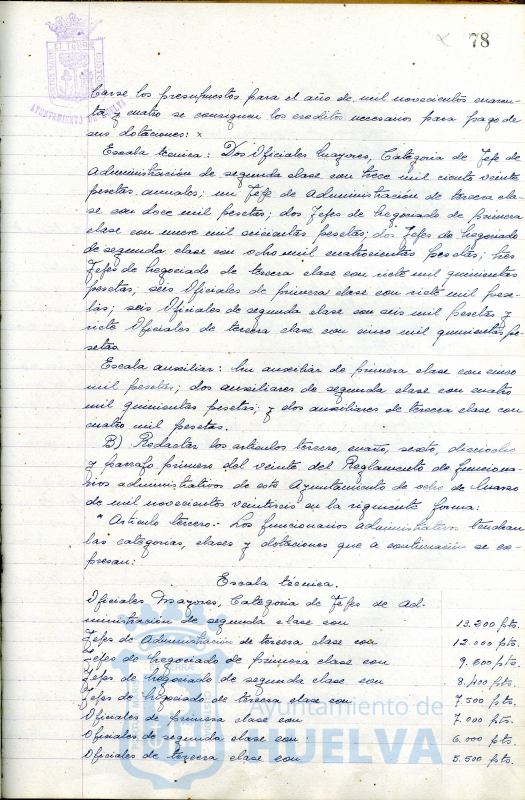 78
carse los presupuestos para el año de mil novecientos cuaren-
ta y cuatro se consignen los créditos necesarios para pago de
sus dotaciones:
Escala técnica: Dos Oficiales Mayores, Categoria de Jefe de
Administración de segunda clase con trece mil
pesetas anuales; un Jefe de Administración de tercera cla-
se con doce mil pesetas; dos Jefes de Negociado de primera
clase con nueve mil seiscientas pesetas; dos Jefes de Negociado
de segunda clase con ocho mil cuatrocientas pesetas; tres
Jefes de Negociado de tercera clase con siete mil quinientas
pesetas; seis Oficiales de primera clase con siete mil pese-
tas; seis Oficiales de segunda clase con seis mil pesetas y
siete Oficiales de tercera clase con cinco mil quinientas pe-
setas.
Escala auxiliar: Un auxiliar de primera clase con cinco
mil pesetas; dos auxiliares de segunda clase con cuatro
mil quinientas pesetas; y dos auxiliares de tercera clase con
cuatro mil pesetas.
B) Redactar los articulos tercero, sexto,
y parrafo primero del veinte del Reglamento de funciona-
rios administrativos de este Ayuntamiento de ocho de Marzo
de mil novecientos veintiseis en la siguiente forma:
"Articulo tercero.- Los funcionarios administrativos tendran
las categorias, clases y dotaciones que a continuación se ex-
presan:
Escala técnica.
Oficiales Mayores, Categoria de Jefes de Ad-
ministración de segunda clase con 13.200 pts.
Jefes de Administración de tercera clase con 12.000 pts.
Jefes de Negociado de primera clase con 9.600 pts.
Jefes de Negociado de segunda clase con 8.400 pts.
Jefes de Negociado de tercera clase con 7.500 pts.
Oficiales de primera clase con 7.000 pts.
Oficiales de segunda clase con 6.000 pts.
Oficiales de tercera clase con 5.500 pts.
Ayuntamiento de
HUELVA